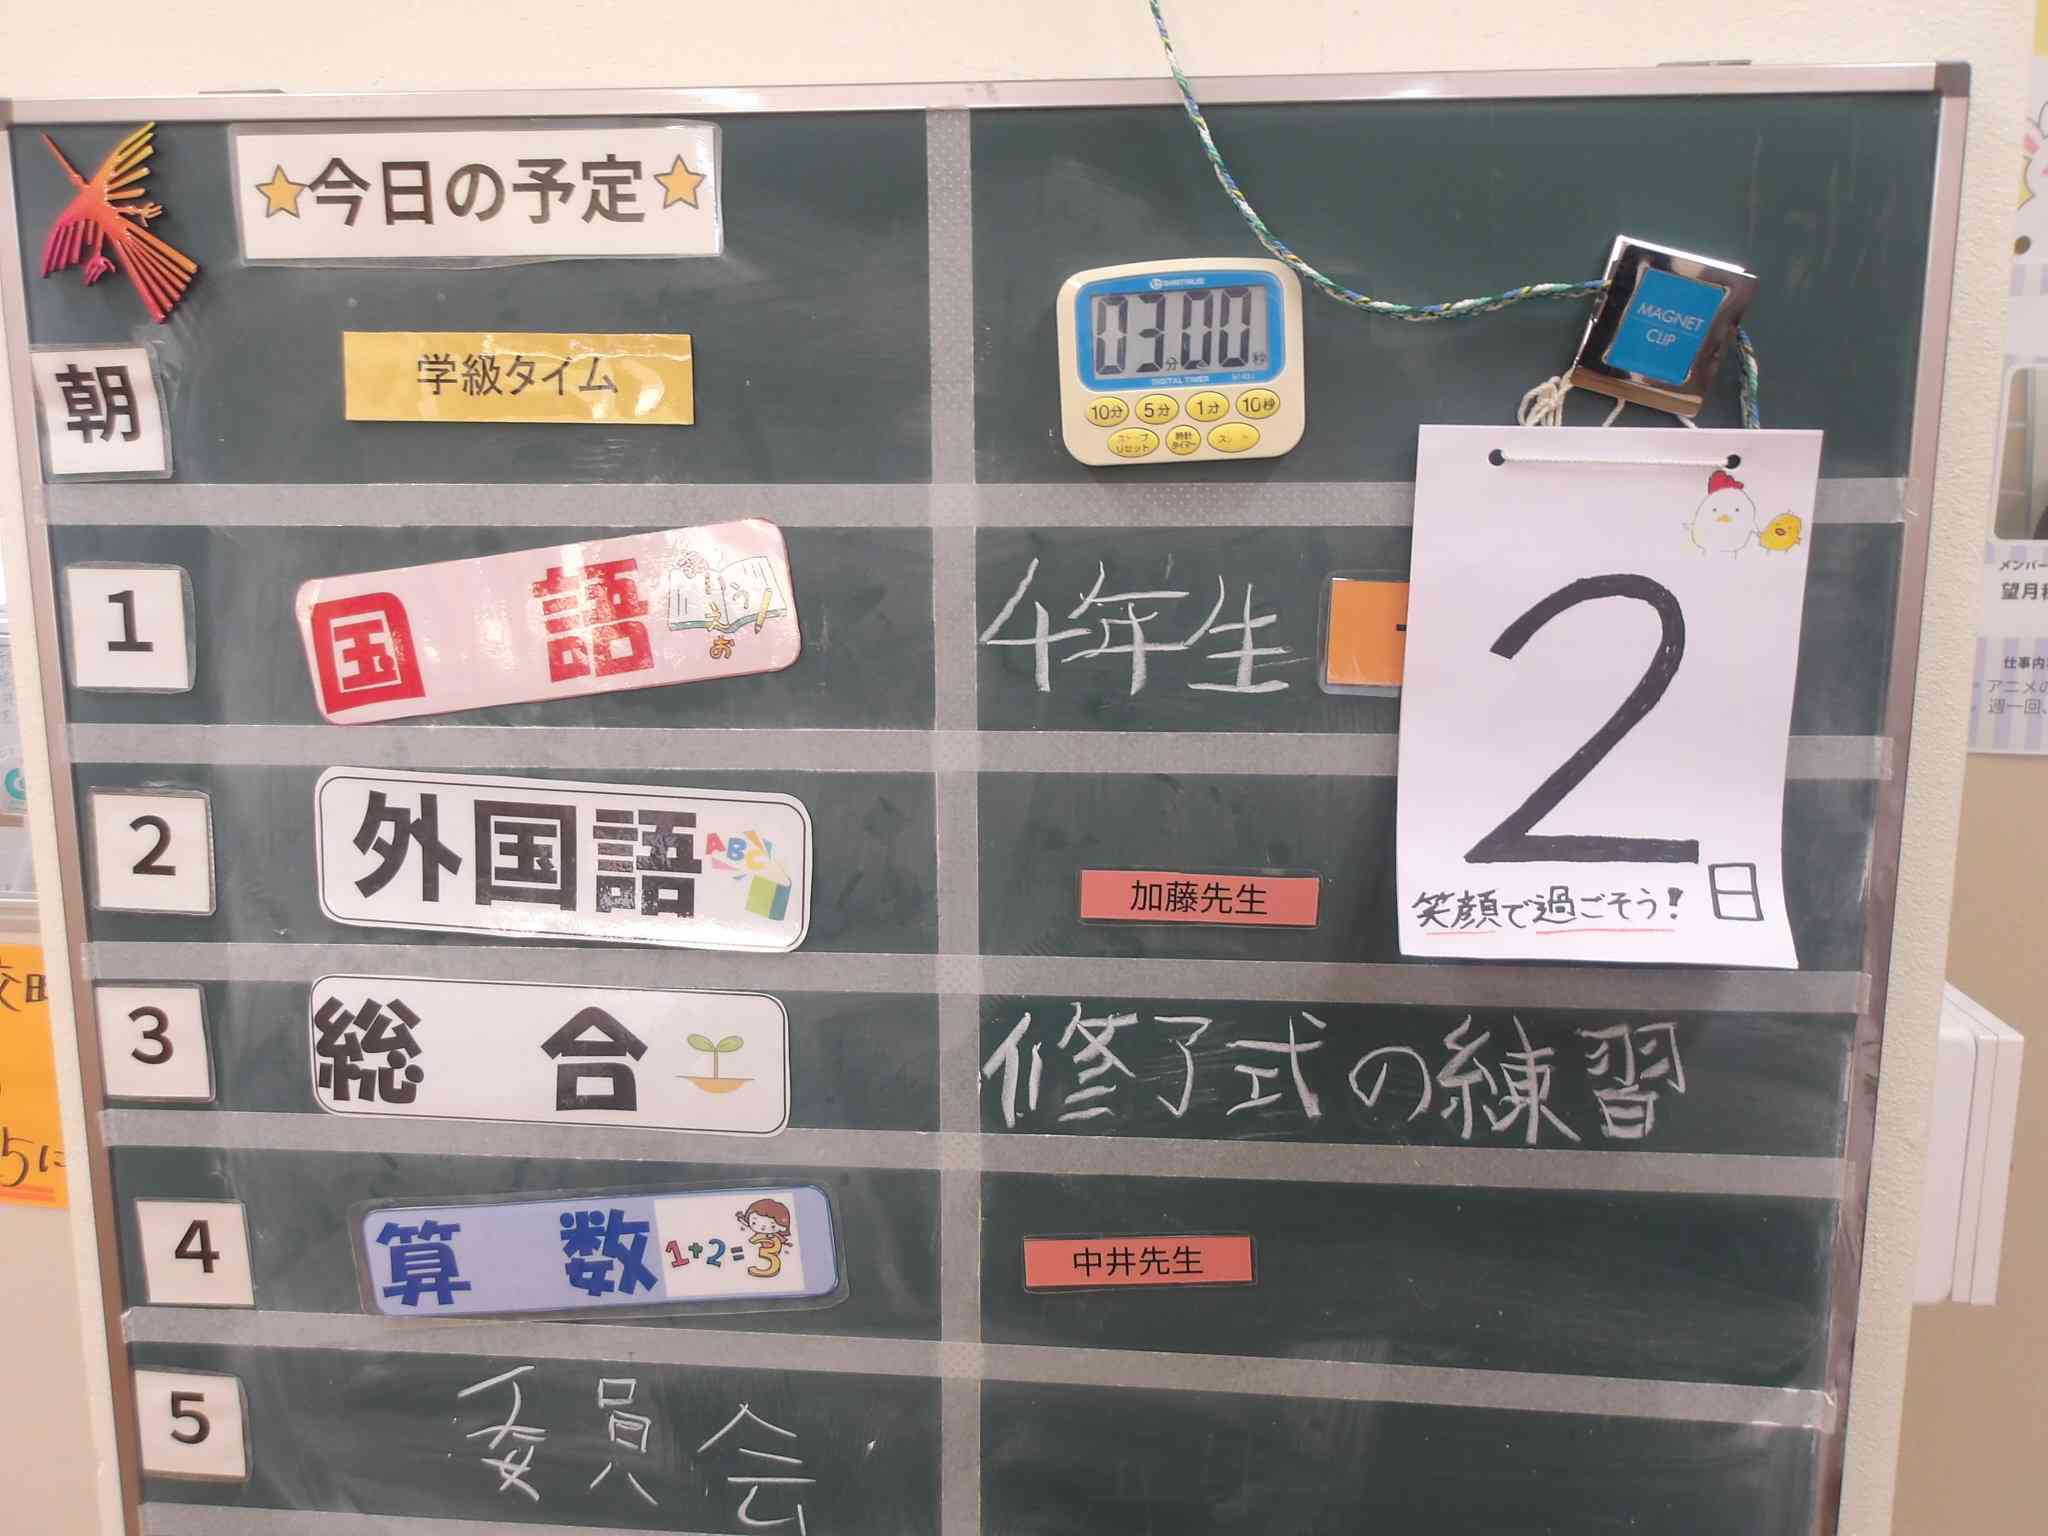 今日の予定
朝
学級タイム
03分00秒
DIGITAL TIMER
10分 5分 1分 10秒
ストップ リセット
時計 タイマー
MAGNET
CLIP
1
国語
4年生
2
外国語
ABC
加藤先生
2日
笑顔で過ごそう!
3
総合
修了式の練習
4
算数
1+2=3
中井先生
5
委員会
メンバー
望月
仕事内
アニメの
週一回、